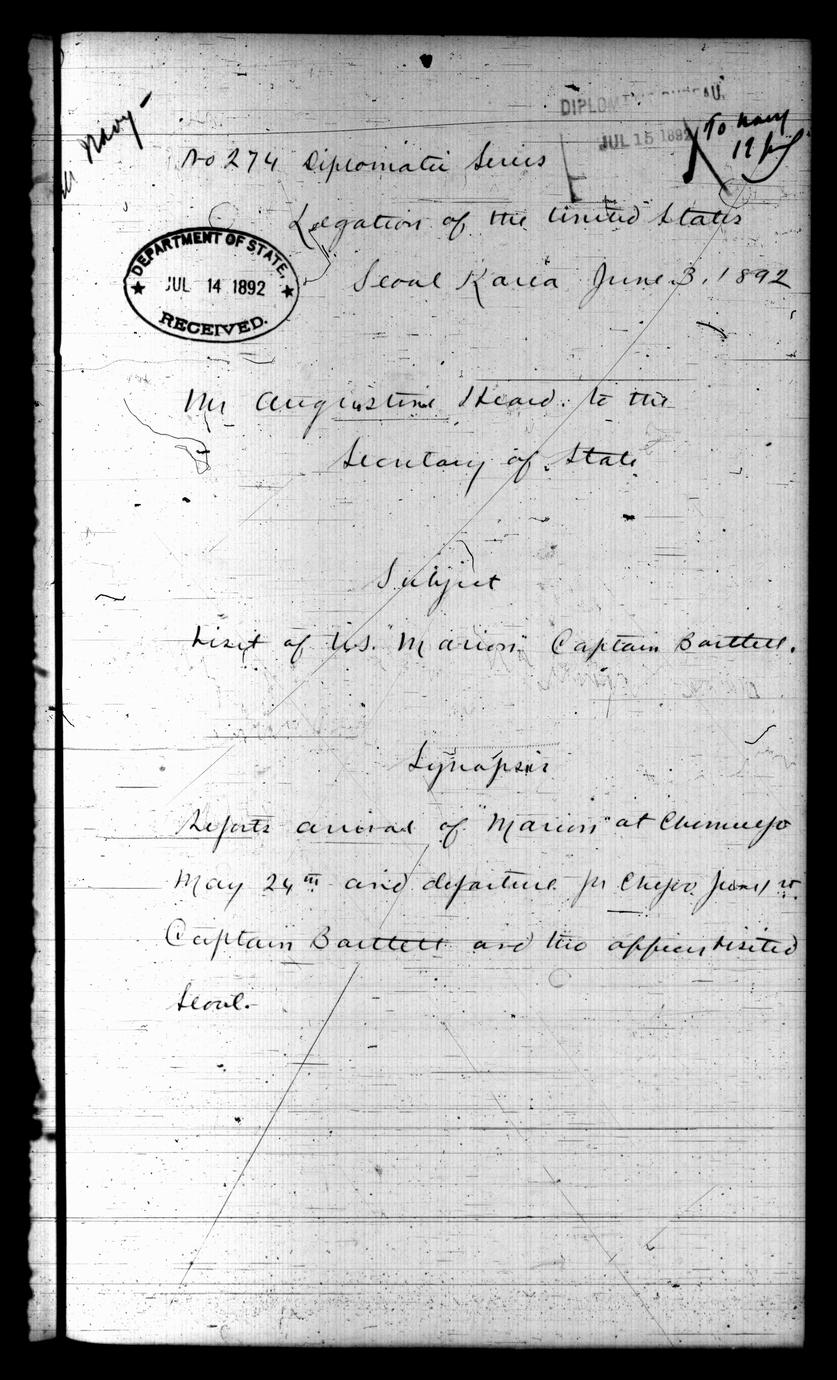 DIPLOMATIC BUREAU.
JUL 15 1892
To Navy
Navy
No 274 Diplomatic Series
Legation of the United States
DEPARTMENT OF STATE,
JUL 14 1892
RECEIVED.
Seoul Korea June 3, 1892
Mr Augustine Heard. to the
Secretary of State
Subject
Visit of U.S. "Marion" Captain Bartlett.
Synopsis
Reports arrival of "Marion" at Chemulpo
May 24th and departure for Chefoo June 1st.
Captain Bartlett and two officers visited
Seoul.